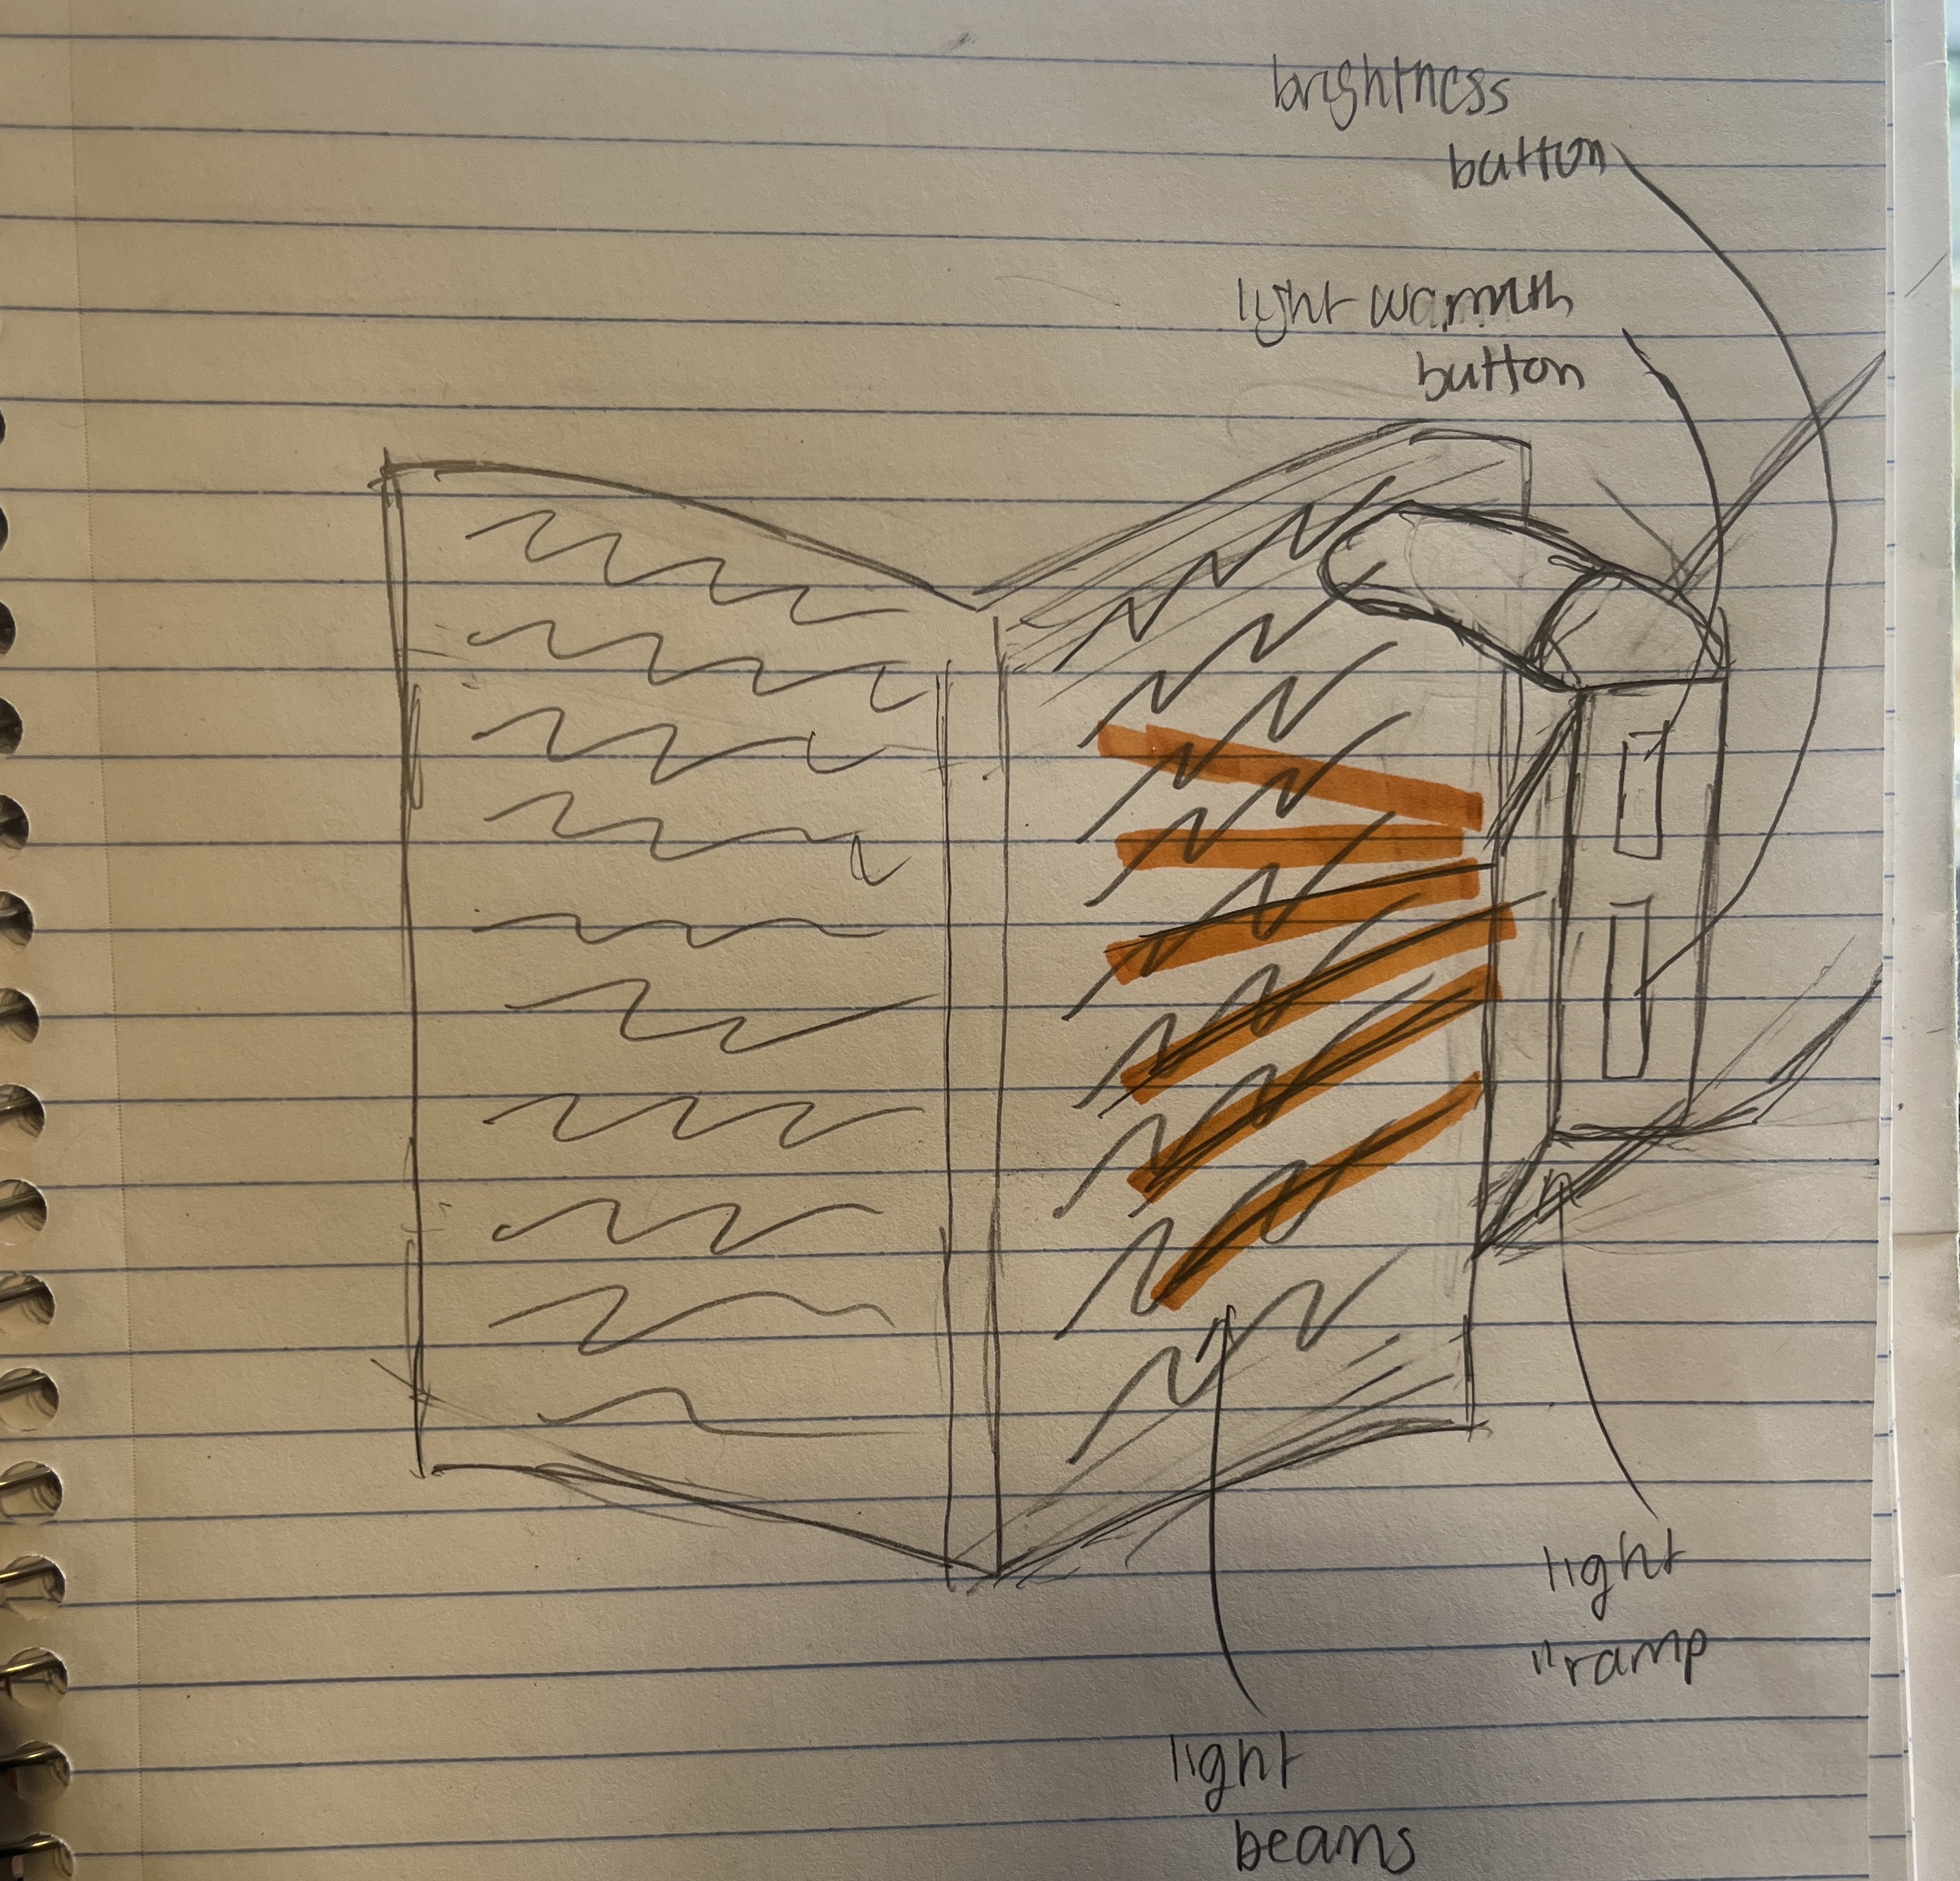 brightness
button
light warmth
button
light
"ramp
light
beans